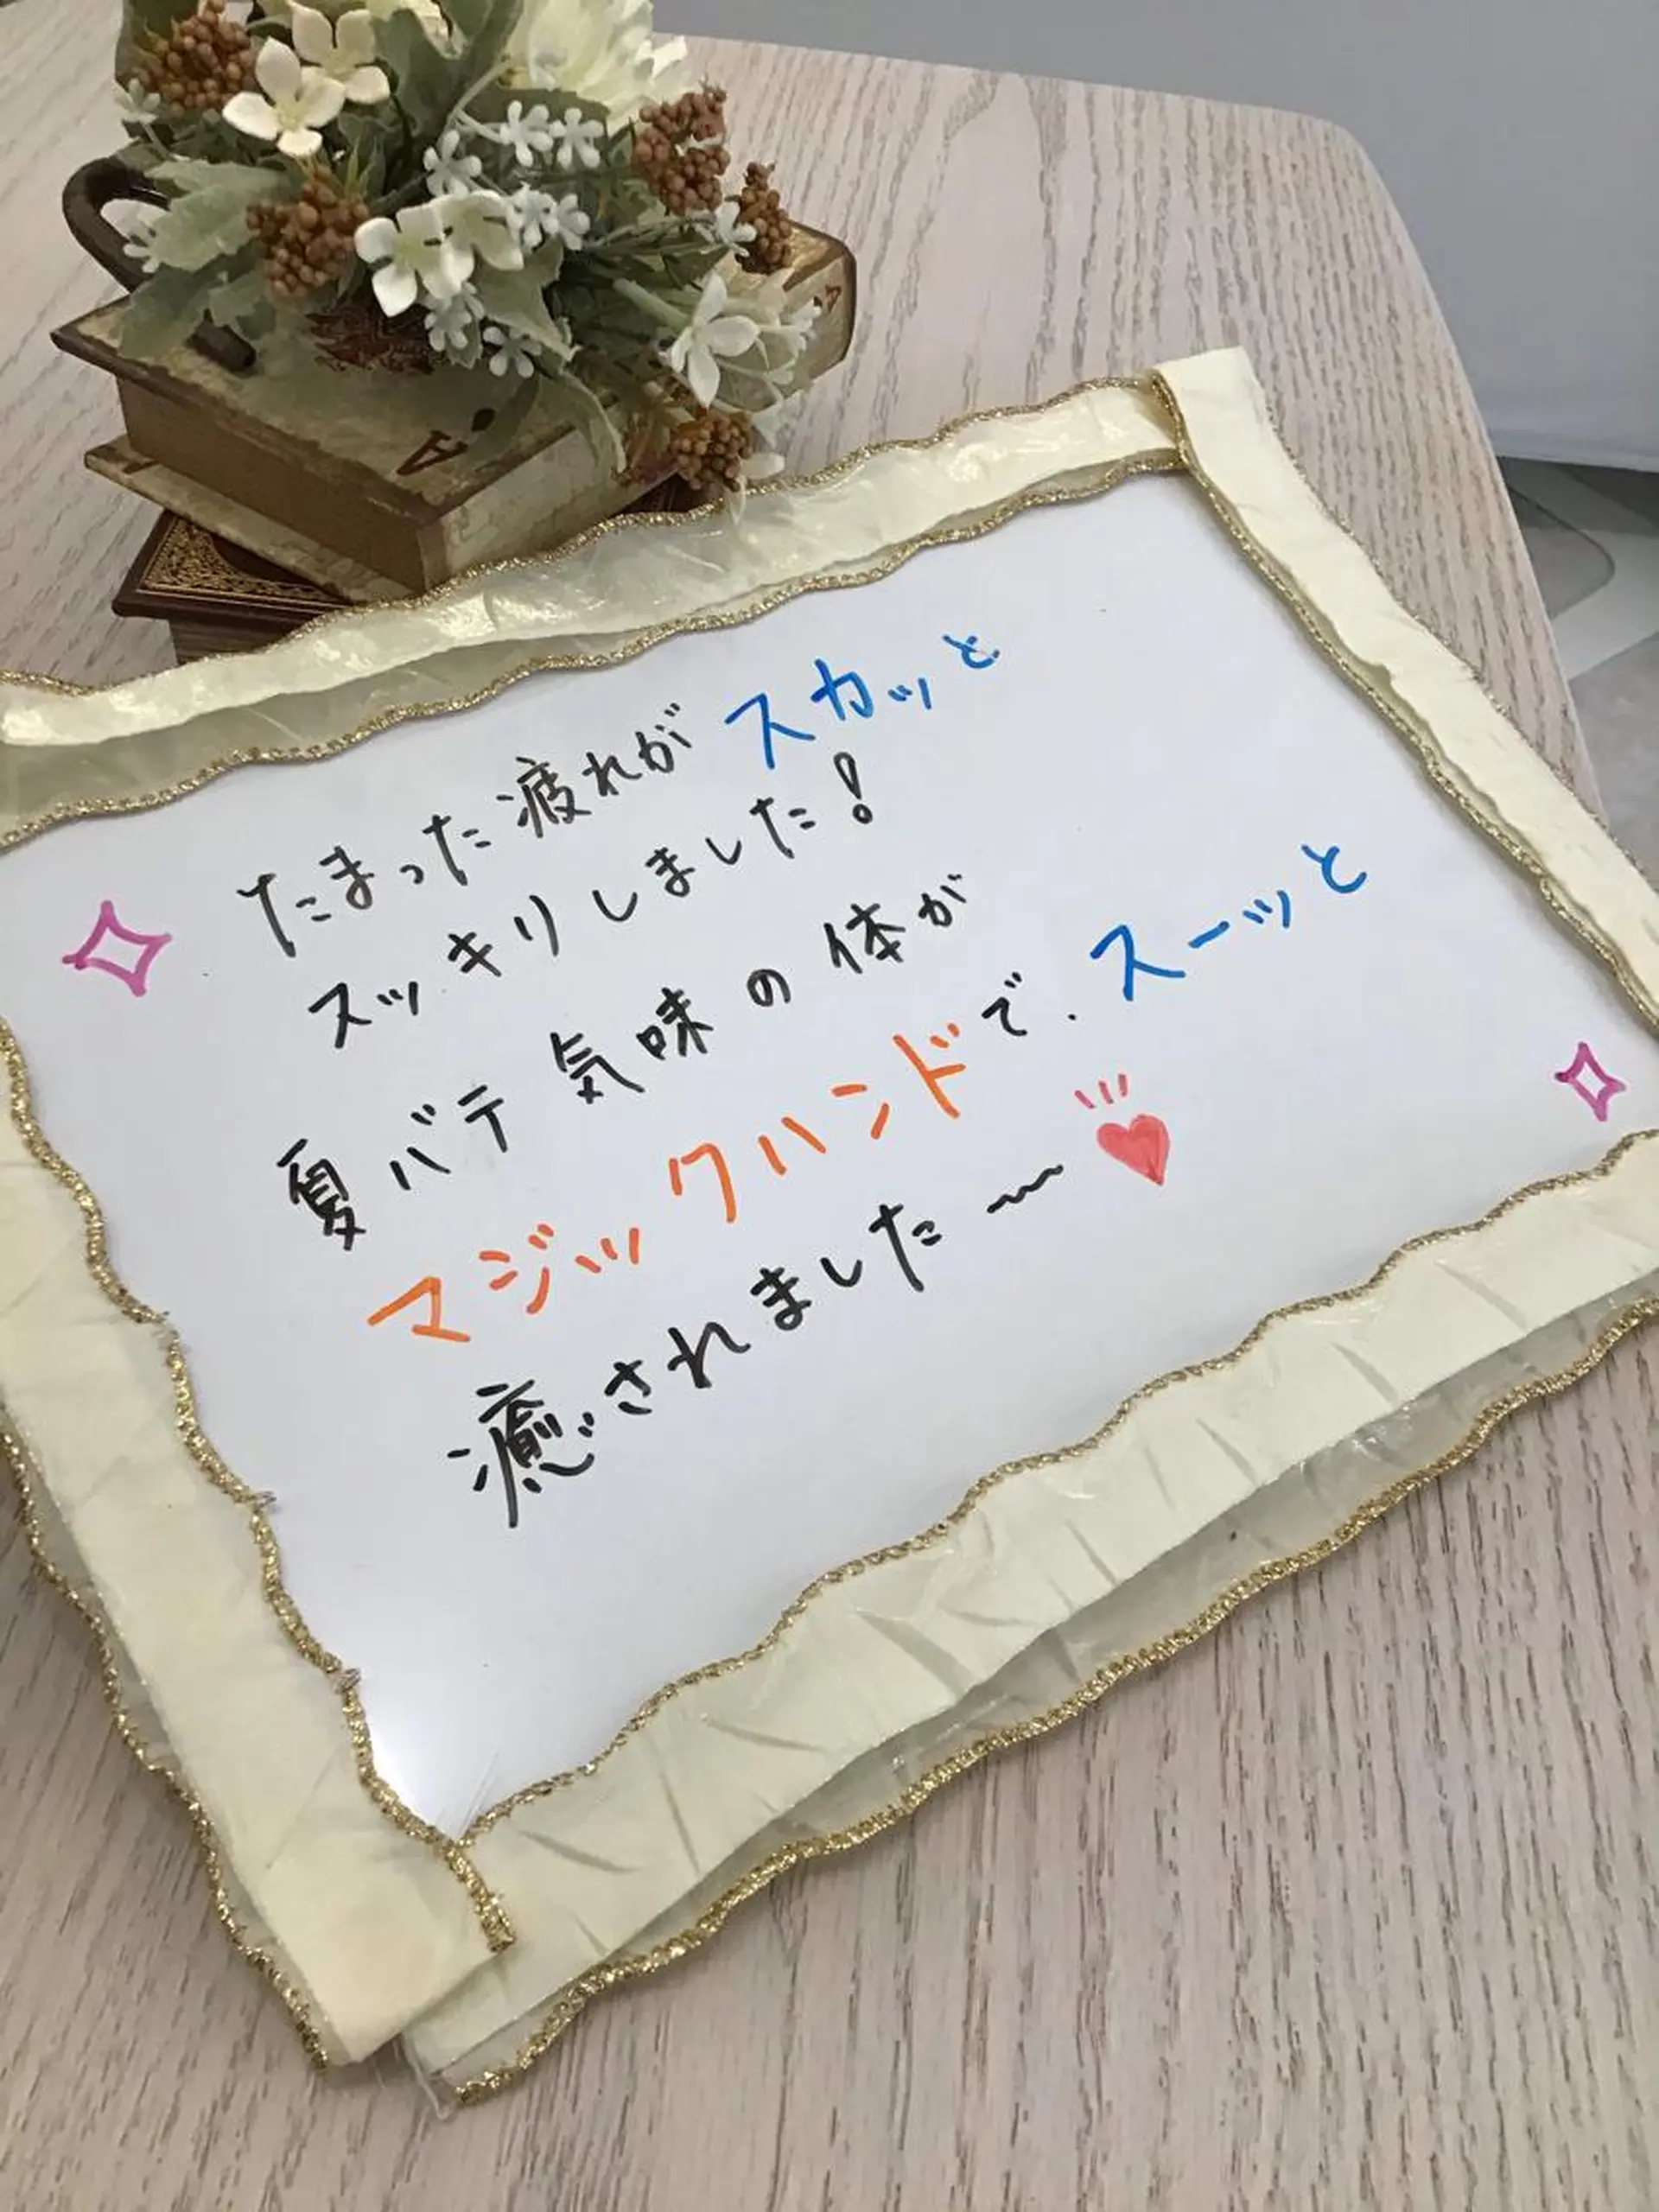 たまった疲れがスカッと
スッキリしました!
夏バテ気味の体が
マジックハンドで、スーッと
癒されました〜
A